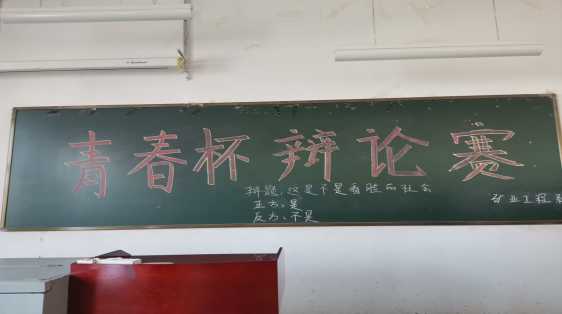 青春杯辩论赛
辩题：这是不是看脸的社会
正方：是
反方：不是
矿业工程系